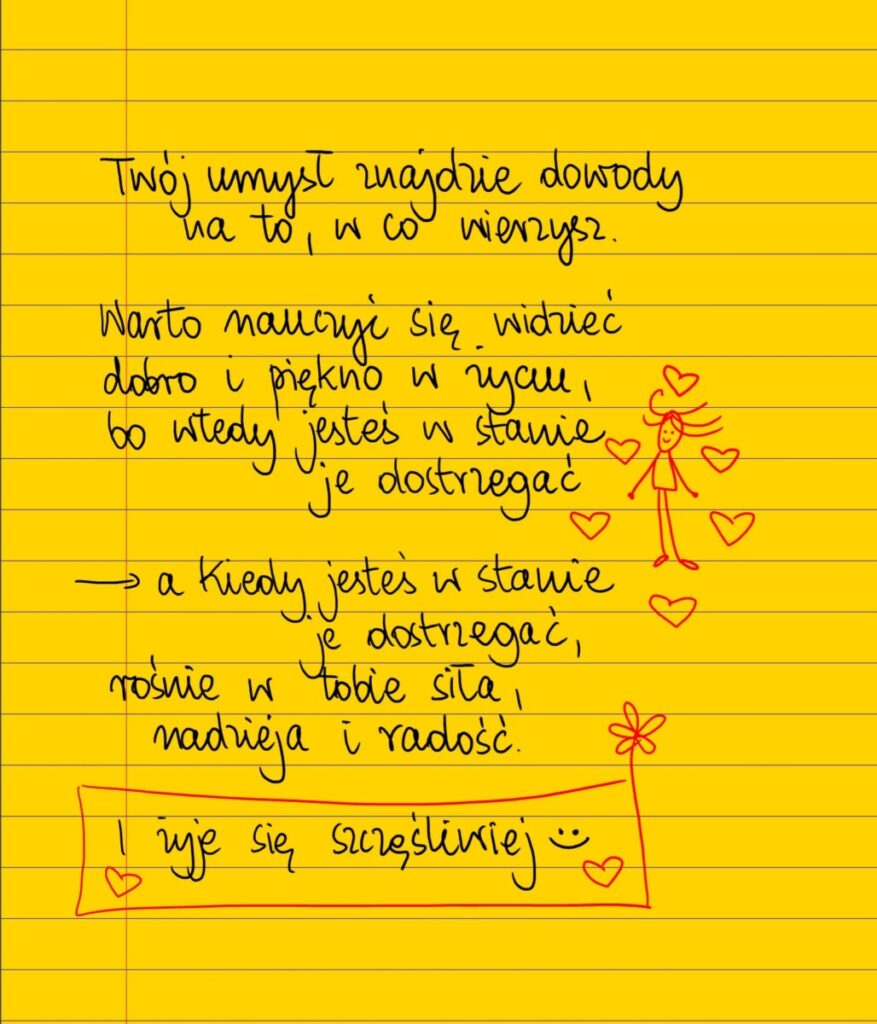 Twój umysł znajdzie dowody
na to, w co wierzysz.
Warto nauczyć się widzieć
dobro i piękno w życiu,
bo wtedy jesteś w stanie
je dostrzegać
→ a kiedy jesteś w stanie
je dostrzegać,
rośnie w tobie siła,
nadzieja i radość.
I żyje się szczęśliwiej :)